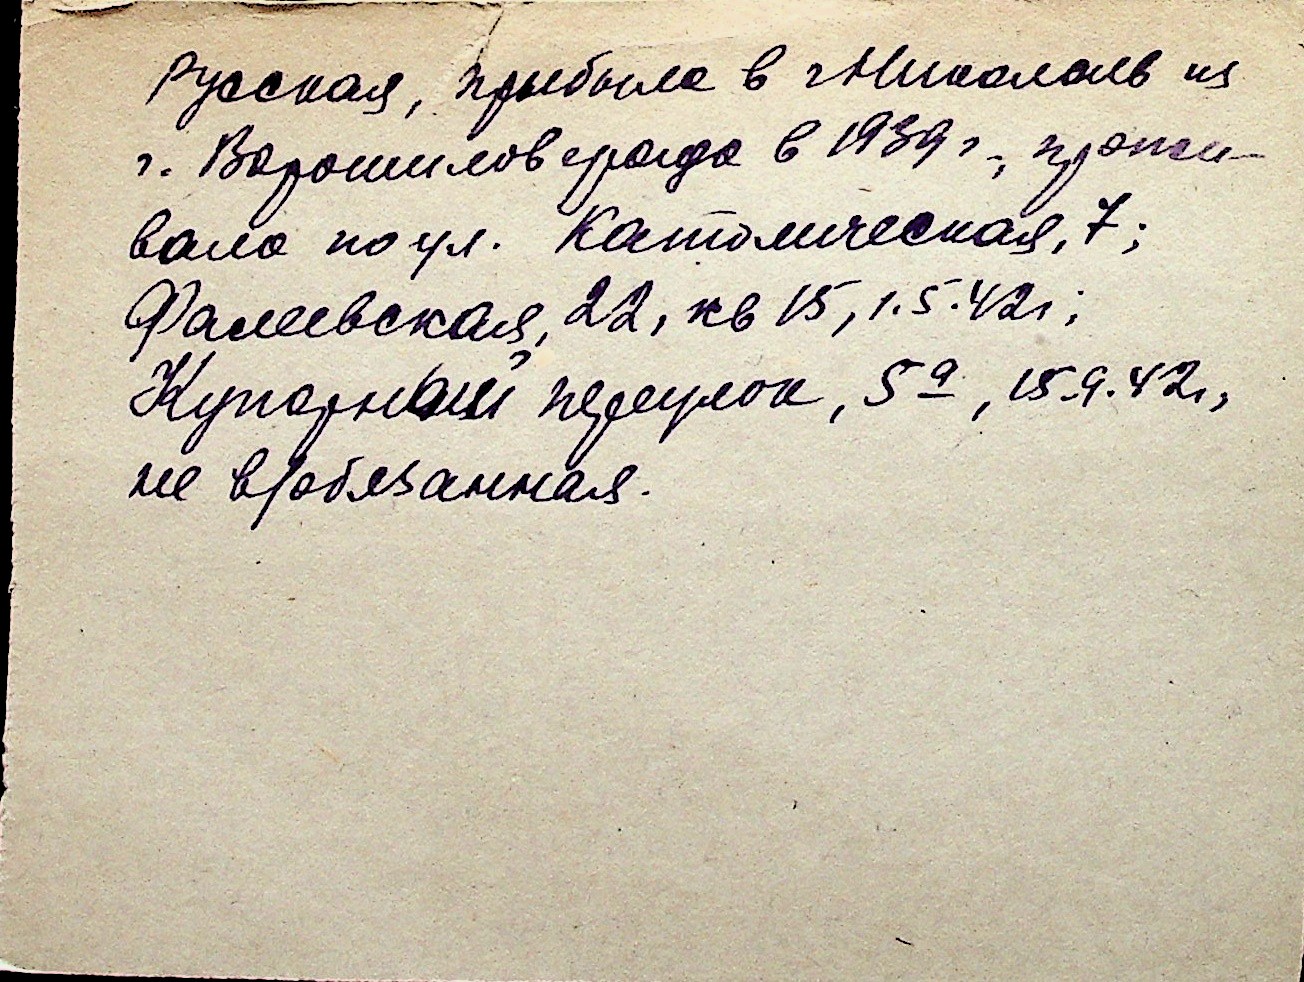 Русская, прибыла в г Николаев из
г. Ворошиловграда в 1939 г., прожи-
вала по ул. Католическая, 7;
Фалеевская, 22, кв 15, 1.5.42г;
Купорный переулок, 5а, 15.9.42г,
не в/обязанная.